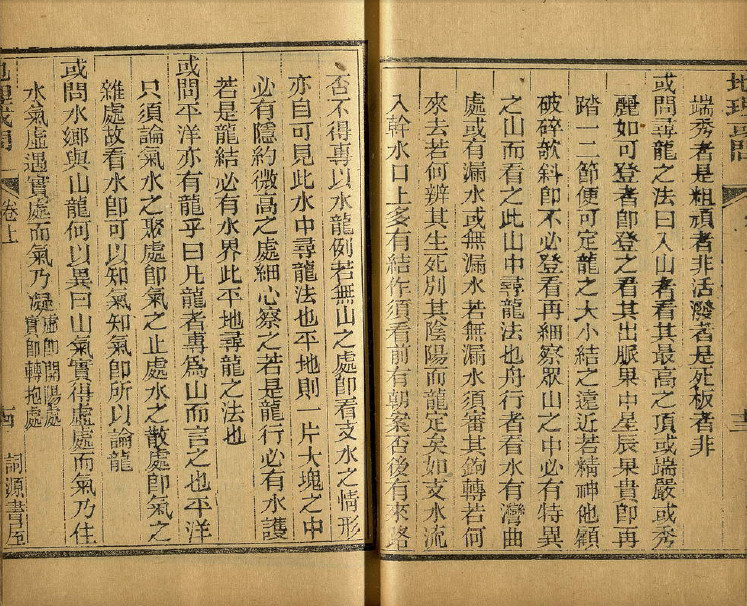 地理或問
端秀者是粗頑者非活潑者是死板者非
或問尋龍之法曰入山者看其最高之頂或端嚴或秀
麗如可登者卽登之看其出脈果中星辰果貴卽再
踏一二節便可定龍之大小結之遠近若精神他顧
破碎欹斜卽不必登看再細察眾山之中必有特異
之山而看之此山中尋龍法也舟行者看水有灣曲
處或有漏水或無漏水若無漏水須審其鉤轉若何
來去若何辨其生死別其陰陽而龍定矣如支水流
入幹水口上多有結作須看前有朝案否後有來路
否不得專以水龍例若無山之處卽看支水之情形
亦自可見此水中尋龍法也平地則一片大塊之中
必有隱約微高之處細心察之若是龍行必有水護
若是龍結必有水界此平地尋龍之法也
或問平洋亦有龍乎曰凡龍者專爲山而言之也平洋
只須論氣水之聚處卽氣之止處水之散處卽氣之
雜處故看水卽可以知氣知氣卽所以論龍
或問水鄉與山龍何以異曰山氣實得虛處而氣乃住
水氣虛遇實處而氣乃凝虛卽開陽處實卽轉抱處
地理或問
卷上
詞源書屋